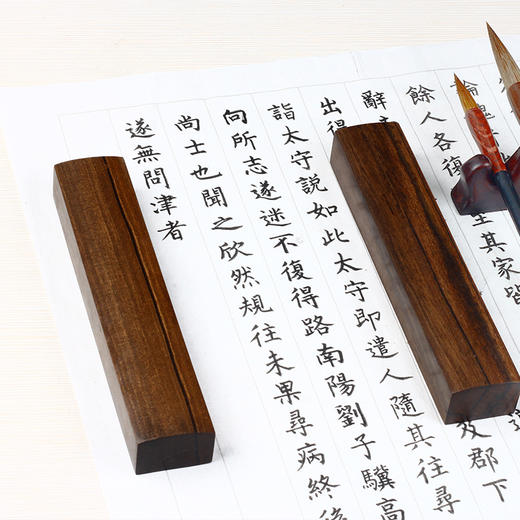 論魏
餘人各復至其家皆
辭
出得及郡下
詣太守說如此太守即遣人隨其往尋
向所志遂迷不復得路南陽劉子驥高
尚士也聞之欣然規往未果尋病終後
遂無問津者